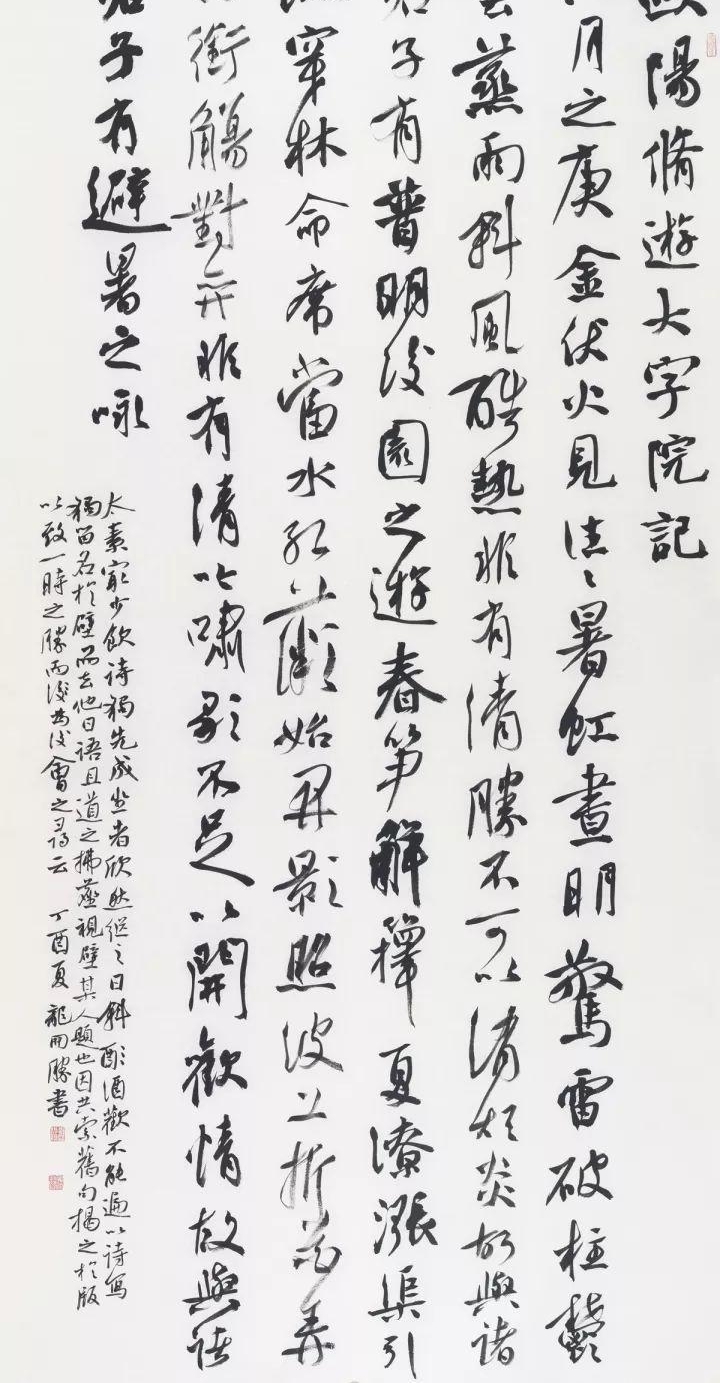 歐陽脩遊大字院記
月之庚金伏火見往往暑虹晝明驚雷破柱鬱
雲蒸雨斜風酷熱非有清勝不可以消煩炎故與諸
君子有普明後園之遊春筍解籜夏潦漲渠引
流穿林命席當水紅薇始開影照波上折花弄
流銜觴對弈非有清吟嘯歌不足以開歡情故與諸
君子有避暑之咏
太素最少飲詩獨先成坐者欣然繼之日斜酣酒歡不能遍以詩寫
獨留名於壁而去他日語且道之拂塵視壁某人題也因共索舊句揭之於版
以致一時之勝而後為後會之尋云 丁酉夏 龍開勝書